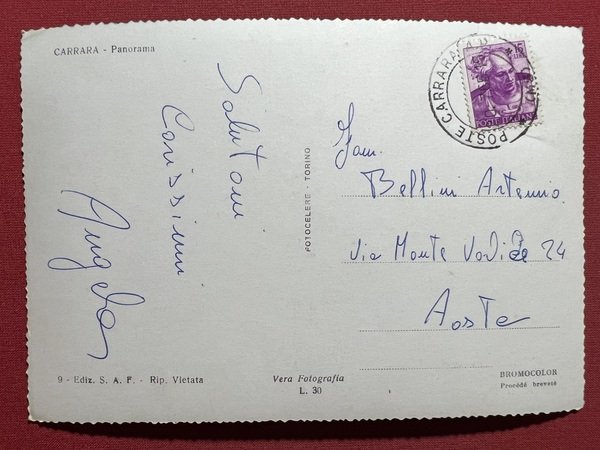 CARRARA - Panorama
Saluton
Carissimi
Angela
FOTOCELERE - TORINO
15
LIRE
POSTE ITALIANE
POSTE CARRARA
Fam.
Bellini Artemio
Via Monte Vodice 24
Aosta
9 - Ediz. S. A. F. - Rip. Vietata
Vera Fotografia
L. 30
BROMOCOLOR
Procédé breveté